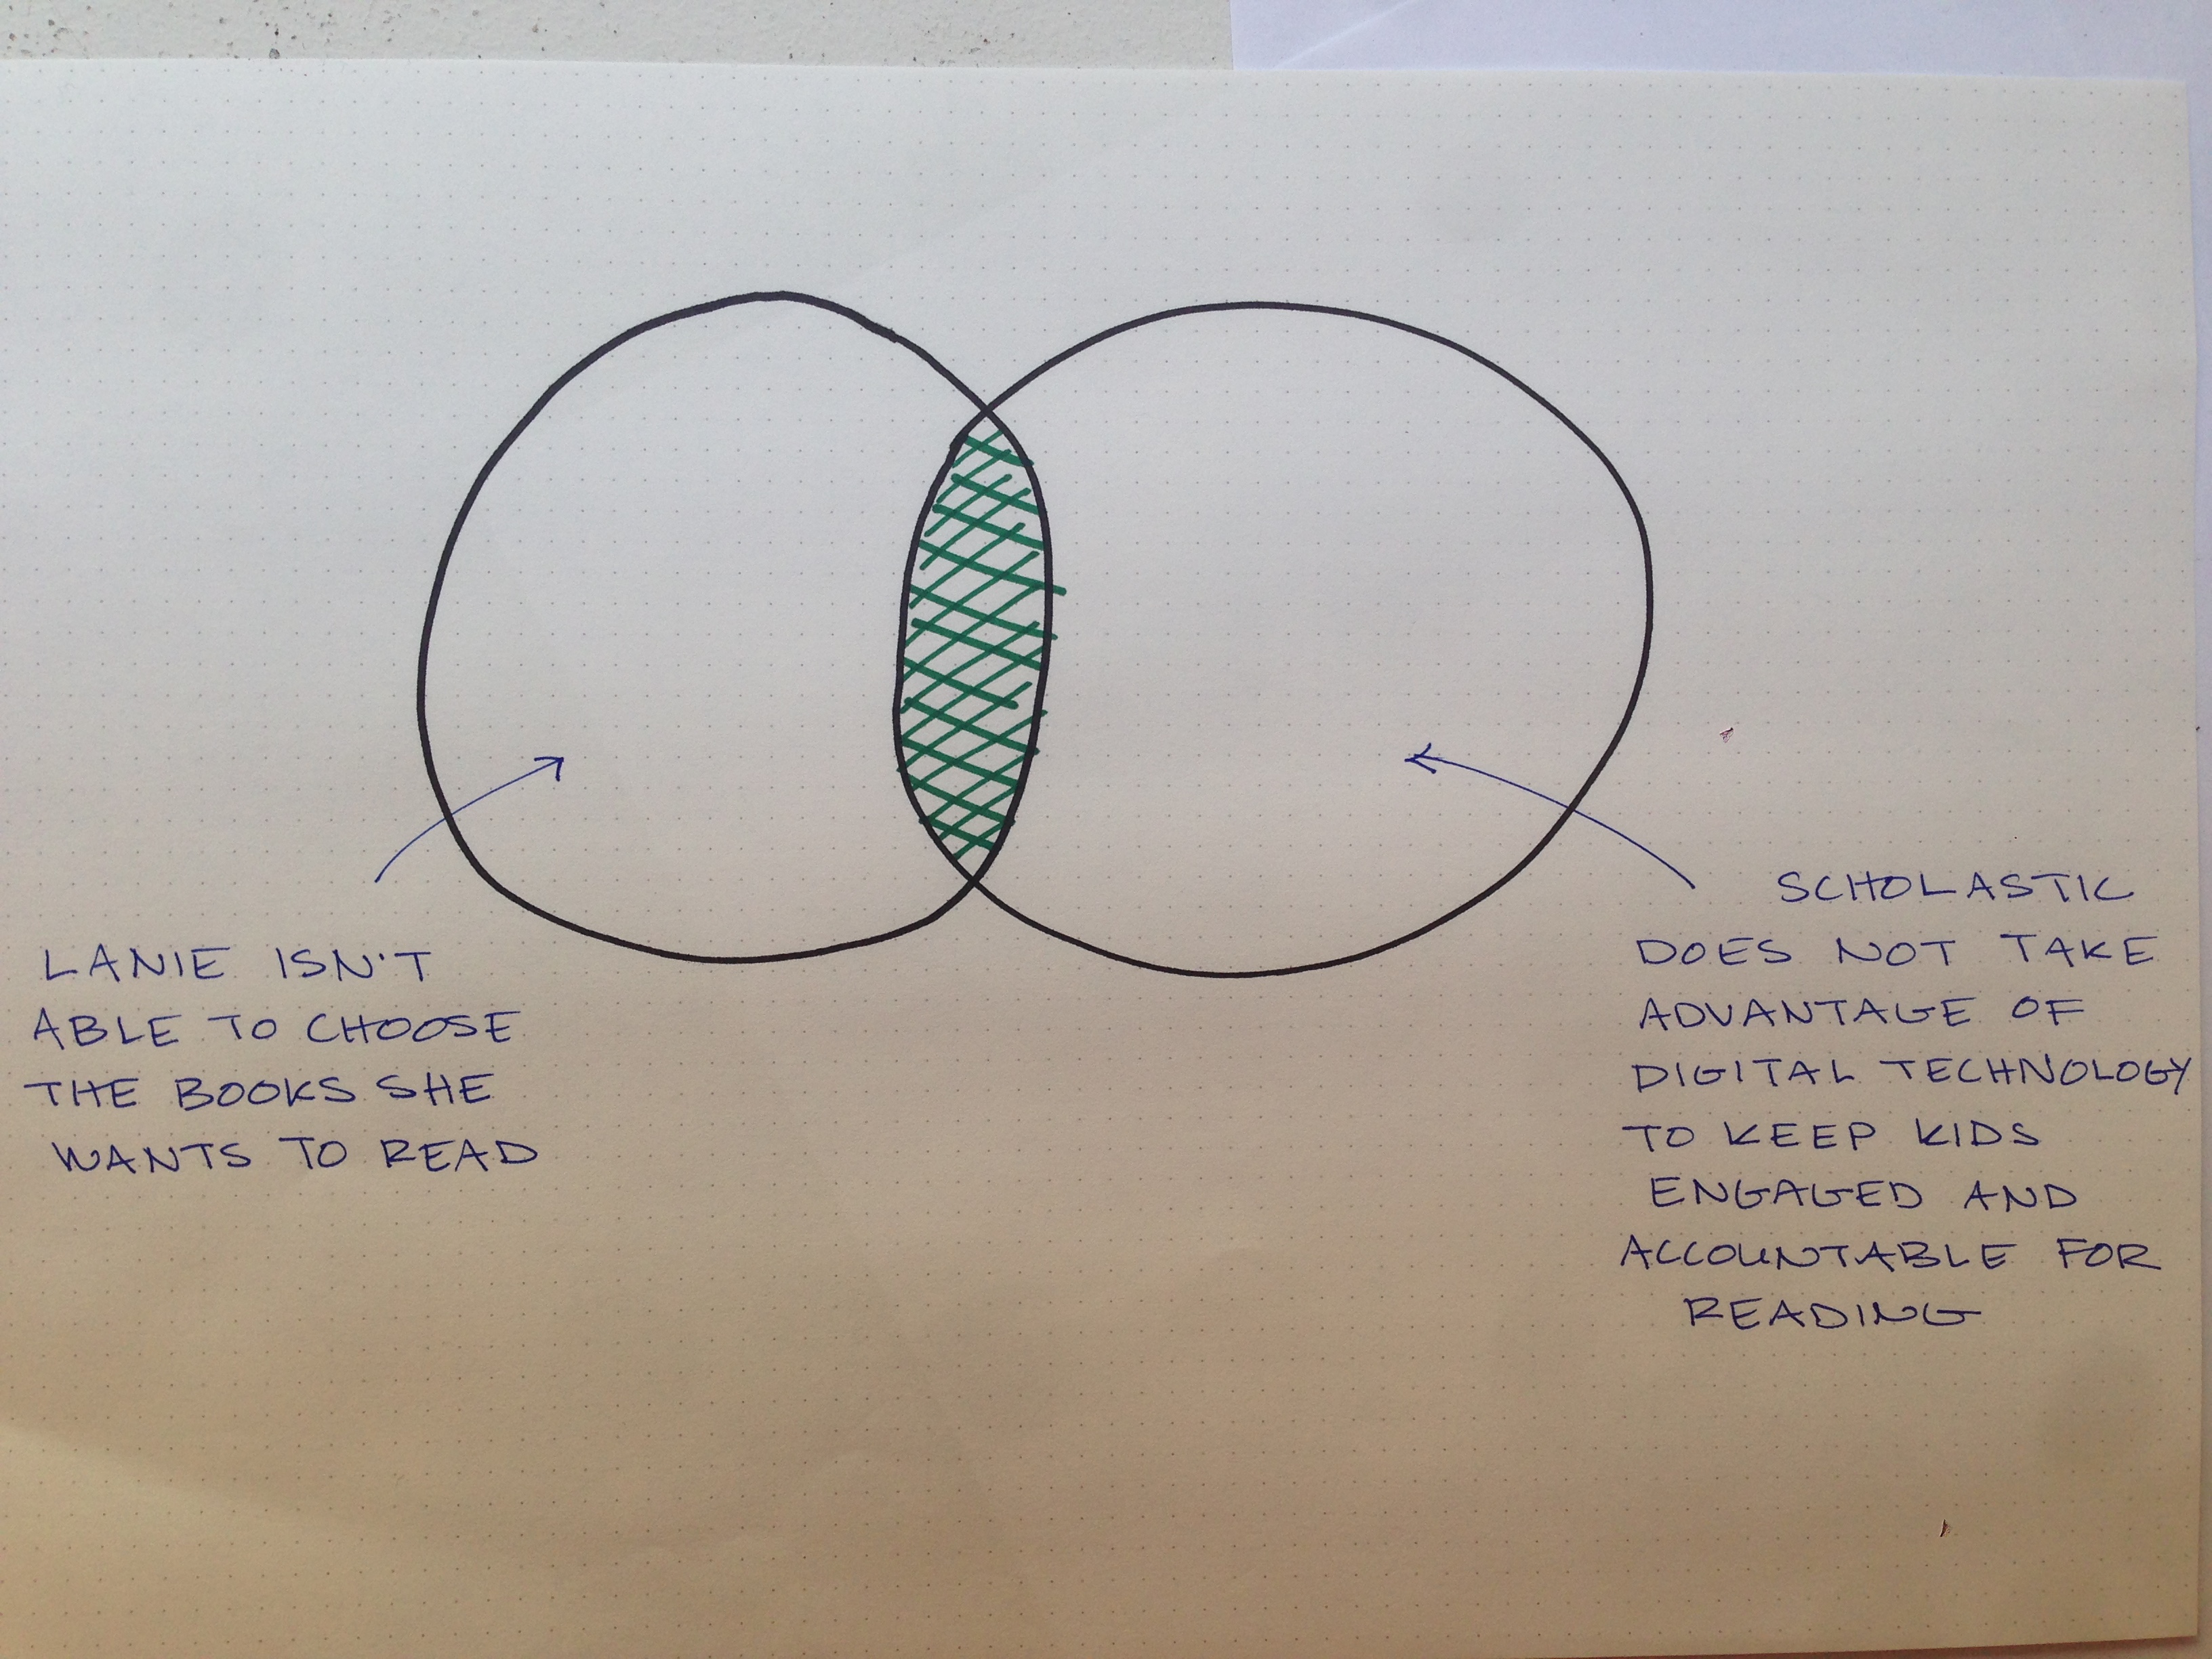 LANIE ISN'T
ABLE TO CHOOSE
THE BOOKS SHE
WANTS TO READ
SCHOLASTIC
DOES NOT TAKE
ADVANTAGE OF
DIGITAL TECHNOLOGY
TO KEEP KIDS
ENGAGED AND
ACCOUNTABLE FOR
READING